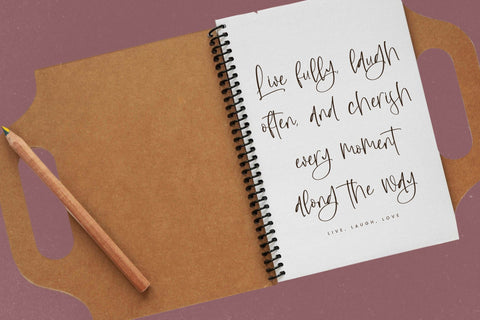 Live fully, laugh
often, and cherish
every moment
along the way
LIVE, LAUGH, LOVE